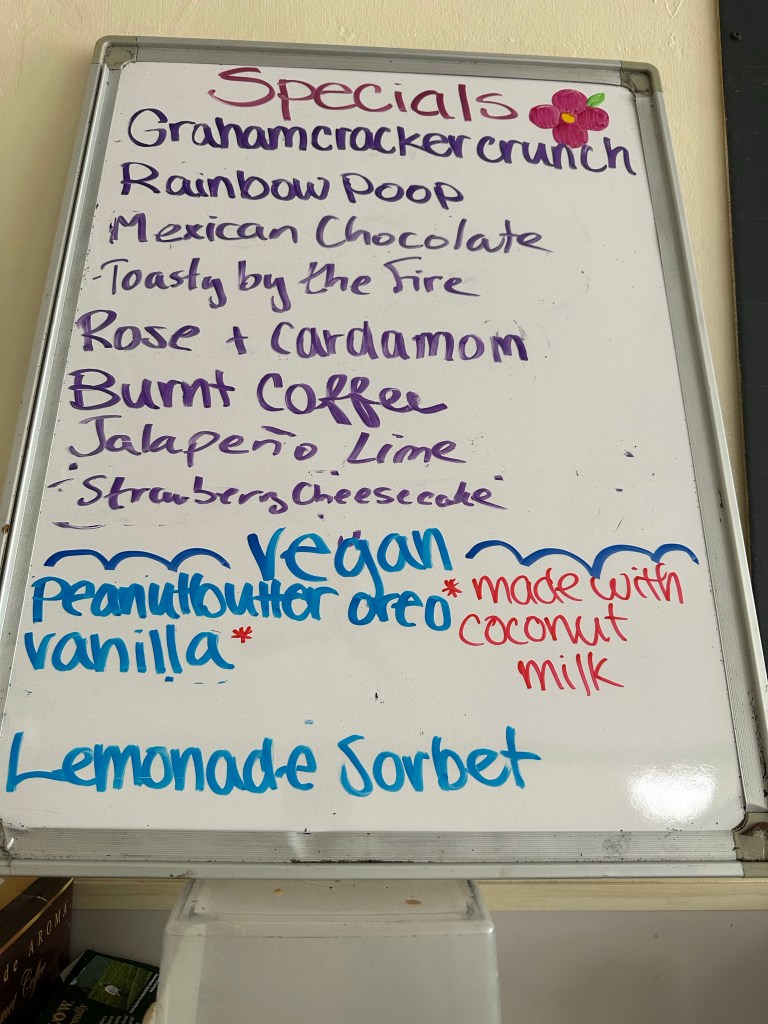 Specials
Grahamcracker crunch
Rainbow Poop
Mexican Chocolate
Toasty by the Fire
Rose + Cardamom
Burnt Coffee
Jalapeño Lime
Strawberry Cheesecake
vegan
Peanutbutter oreo*
vanilla*
* made with
coconut
milk
Lemonade Sorbet
de AROMA
Coffee